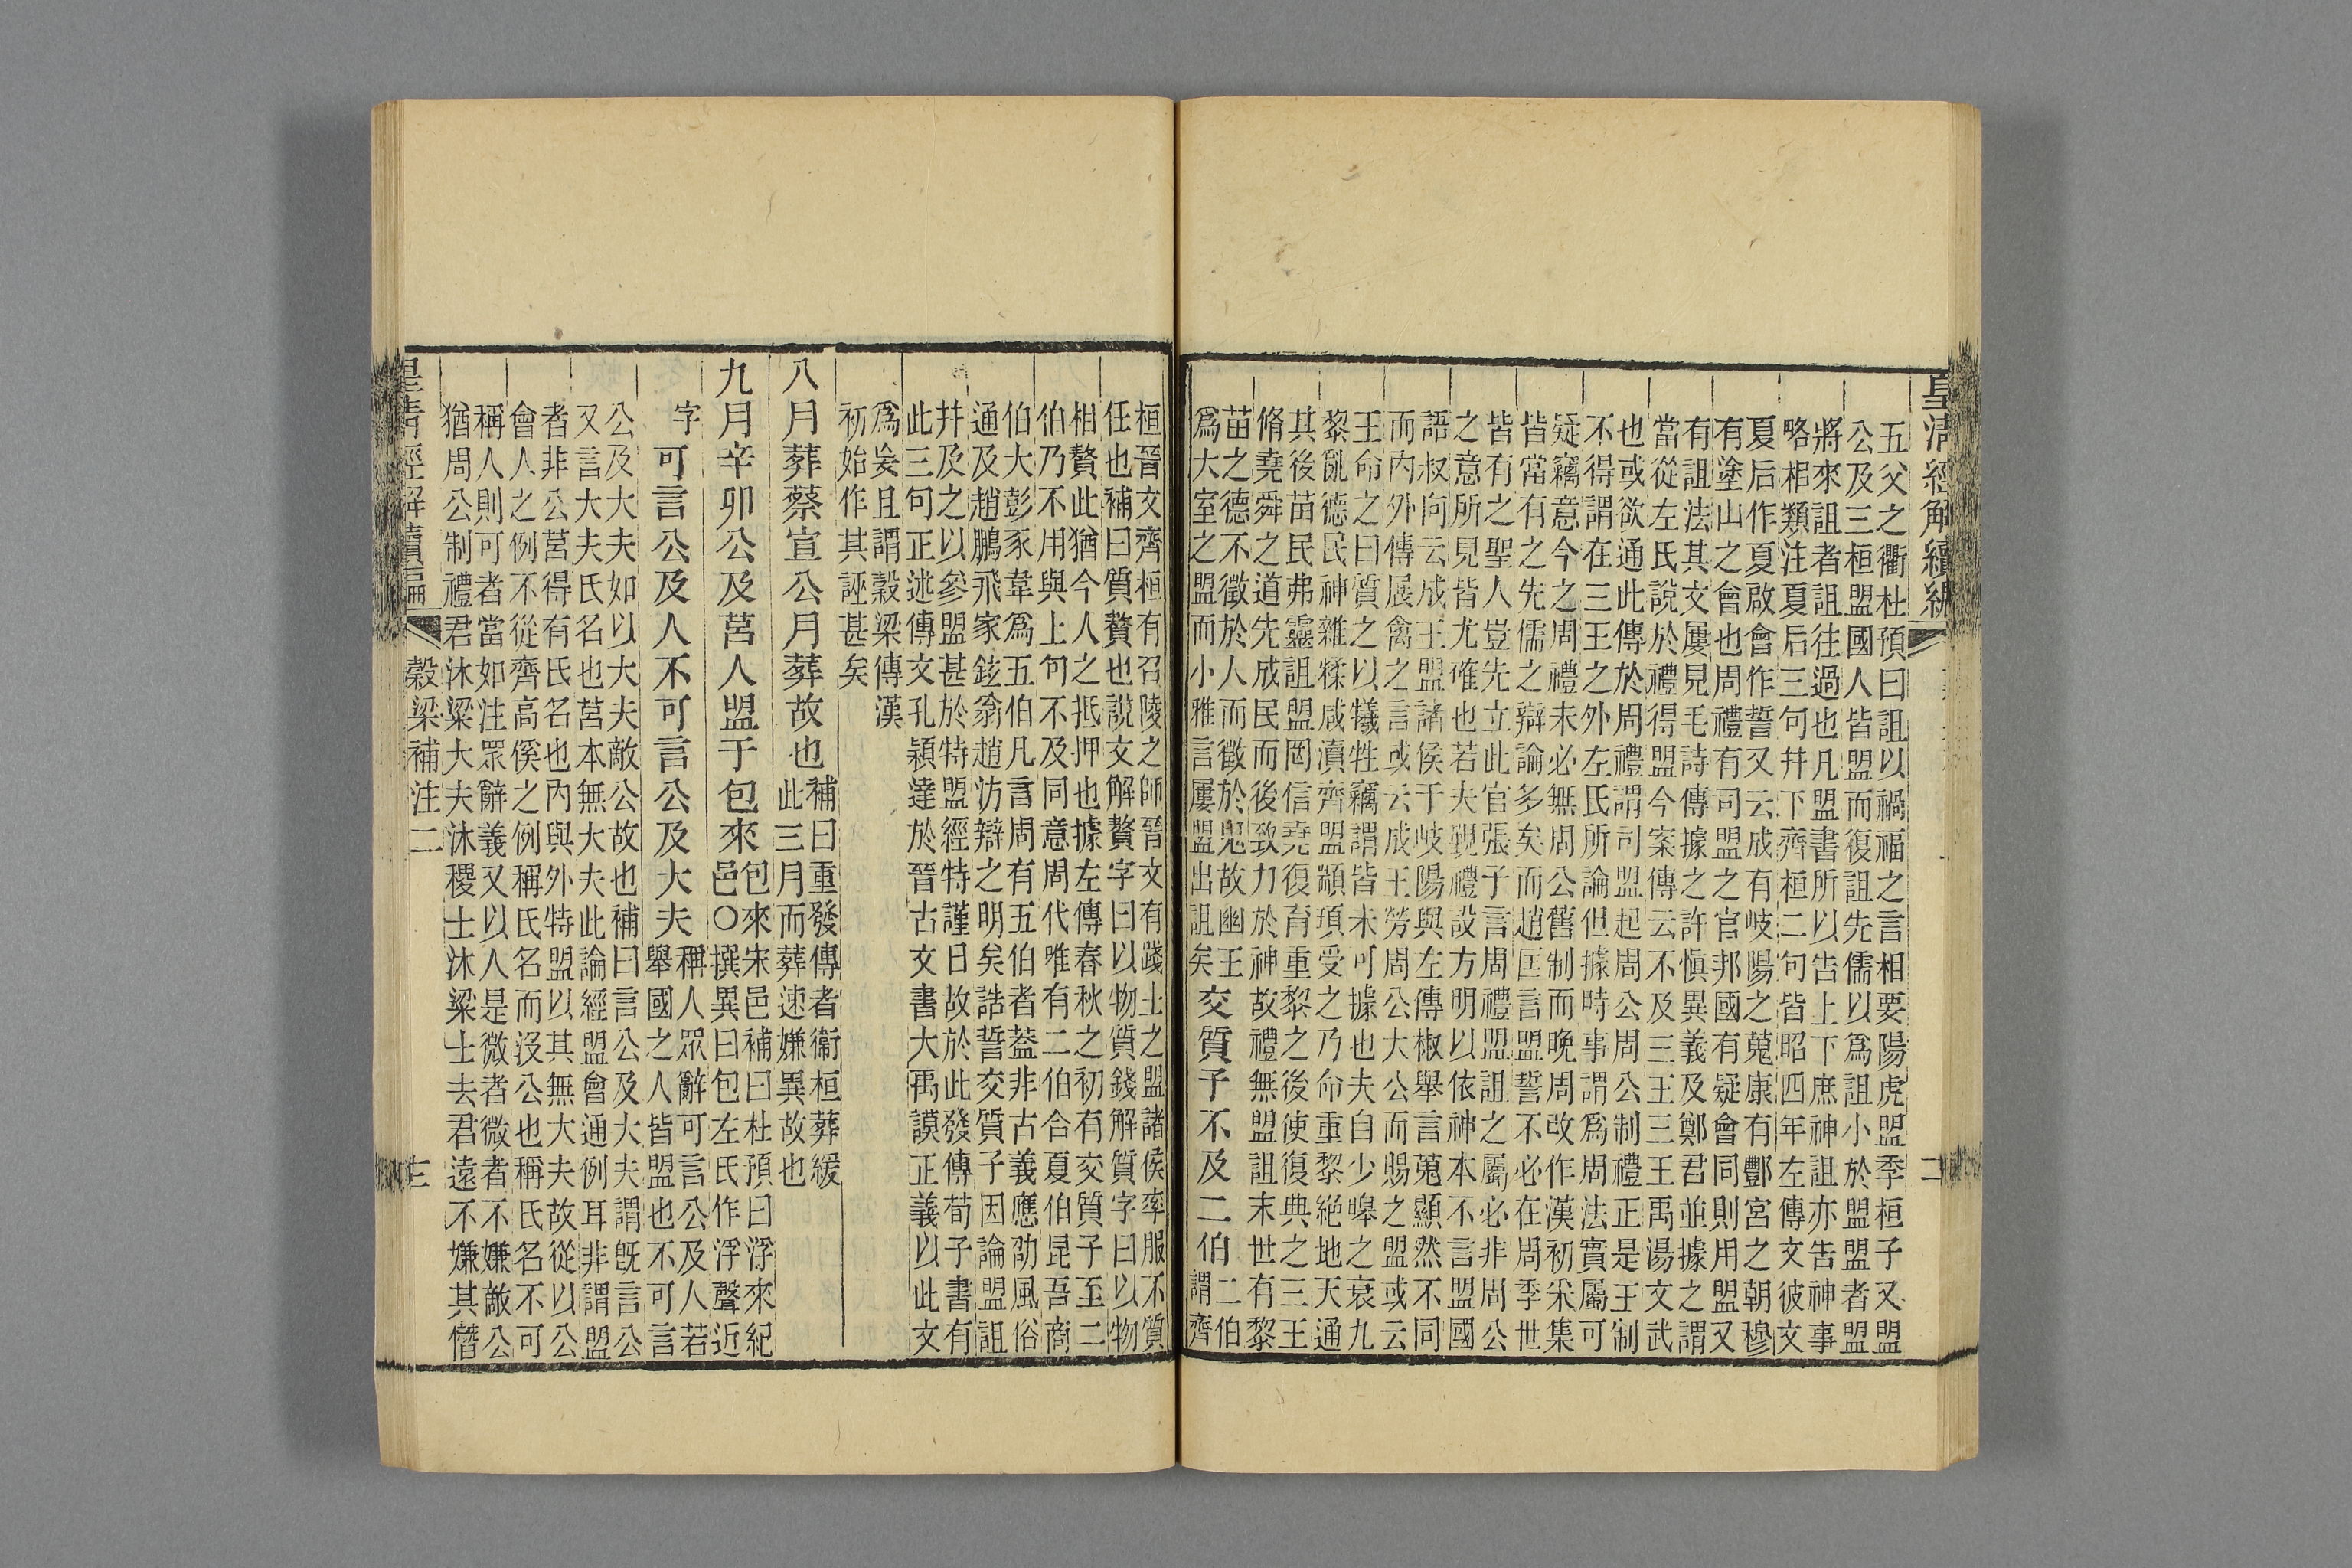 皇清經解續編
二
五父之衢杜預曰詛以禍福之言相要陽虎盟季桓子又盟
公及三桓盟國人皆盟而復詛先儒以爲詛小於盟盟者盟
將來詛者詛往過也凡盟書所以告上下庶神詛亦告神事
略相類注夏后三句幷下齊桓二句皆昭四年左傳文彼文
夏后作夏啟會作誓又云成有岐陽之蒐康有酆宮之朝穆
有塗山之會也周禮有司盟之官邦國有疑會同則用盟又
有詛法其文屢見毛詩傳據之許愼異義及鄭君並據之謂
當從左氏說於禮得盟今案傳云不及三王三王禹湯文武
也或欲通此傳於周禮謂司盟起周公周公制禮正是王制
不得謂在三王之外左氏所論但據時事謂爲周法實屬可
疑竊意今之周禮未必無周公舊制而晚周改作漢初釆集
皆當有之先儒之辯論多矣而趙匡言盟誓不必在周季世
皆有之聖人豈先立此官張子言周禮盟詛之屬必非周公
之意所見皆尤確也若夫覲禮設方明以依神本不言盟國
語叔向云成王盟諸侯于岐陽與左傳椒舉言蒐顯然不同
而內外傳展禽之言或云成王勞周公大公而賜之盟或云
王命之曰質之以犧牲竊謂皆未可據也夫自少皞之衰九
黎亂德民神雜糅咸瀆齊盟顓頊受之乃命重黎絶地天通
其後苗民弗靈詛盟罔信堯復育重黎之後使復典之三王
脩堯舜之道先成民而後致力於神故禮無盟詛末世有黎
苗之德不徵於人而徵於鬼故幽王
爲大室之盟而小雅言屢盟出詛矣
交質子不及二伯
二伯
謂齊
桓晉文齊桓有召陵之師晉文有踐土之盟諸侯率服不質
任也補曰質贅也說文解贅字曰以物質錢解質字曰以物
相贅此猶今人之抵押也據左傳春秋之初有交質子至二
伯乃不用與上句不及同意周代唯有二伯合夏伯昆吾商
伯大彭豕韋爲五伯凡言周有五伯者蓋非古義應劭風俗
通及趙鵬飛家鉉翁趙汸辯之明矣誥誓交質子因論盟詛
幷及之以參盟甚於特盟經特謹日故於此發傳荀子書有
此三句正述傳文孔穎達於晉古文書大禹謨正義以此文
爲妄且謂穀梁傳漢
初始作其誣甚矣
八月葬蔡宣公月葬故也
補曰重發傳者衞桓葬緩
此三月而葬速嫌異故也
九月辛卯公及莒人盟于包來
包來宋邑補曰杜預曰浮來紀
邑○撰異曰包左氏作浮聲近
字
可言公及人不可言公及大夫
稱人眾辭可言公及人若
舉國之人皆盟也不可言
公及大夫如以大夫敵公故也補曰言公及大夫謂旣言公
又言大夫氏名也莒本無大夫此論經盟會通例耳非謂盟
者非公莒得有氏名也內與外特盟以其無大夫故從以公
會人之例不從齊高傒之例稱氏名而沒公也稱氏名不可
稱人則可者當如注眾辭義又以人是微者微者不嫌敵公
猶周公制禮君沐梁大夫沐稷士沐粱士去君遠不嫌其僭
皇清經解續編
穀梁補注二
三